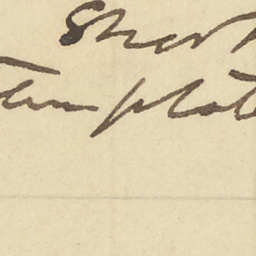 Short
Template